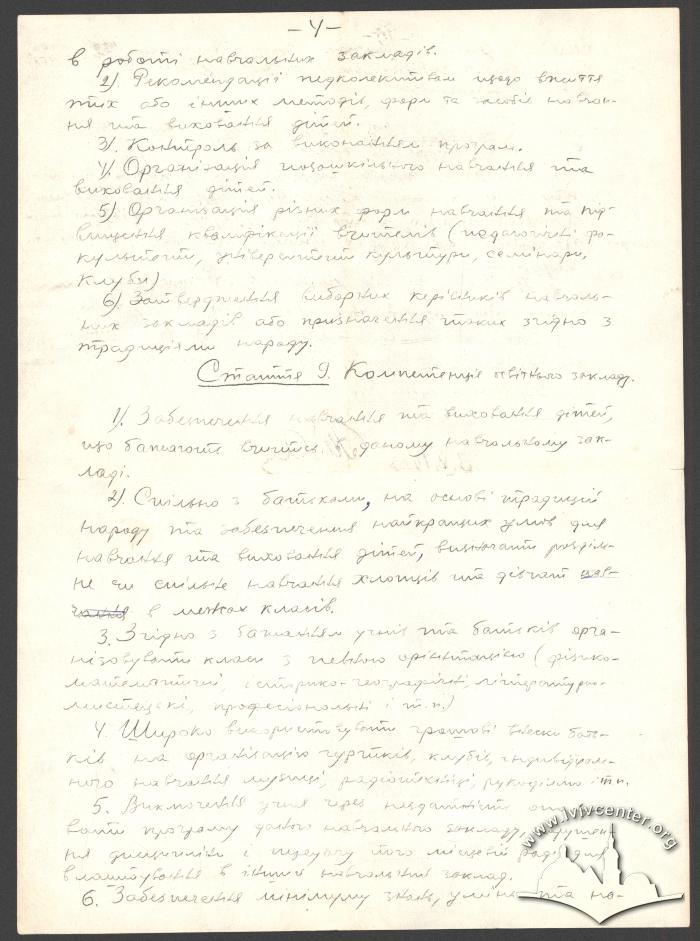 – 4 –
в роботі навчальних закладів.
2). Рекомендації педколективам щодо вжиття
тих або інших методів, форм та засобів навчан-
ня та виховання дітей.
3). Контроль за виконанням програм.
4). Організація позашкільного навчання та
виховання дітей.
5) Організація різних форм навчання та під-
вищення кваліфікації вчителів (педагогічні фа-
культети, університети культури, семінари,
клуби)
6) Затвердження виборних керівників навчаль-
них закладів або призначення таких згідно з
традиціями народу.
Стаття 9. Компетенція освітнього закладу.
1). Забезпечення навчання та виховання дітей,
що бажають вчитись в даному навчальному зак-
ладі.
2). Спільно з батьками, на основі традицій
народу та забезпечення найкращих умов для
навчання та виховання дітей, визначати розділь-
не чи спільне навчання хлопців та дівчат нав-
чання в межах класів.
3. Згідно з бажанням учнів та батьків орга-
нізовувати класи з певною орієнтацією (фізико-
математичні, історико-географічні, літературно-
мистецькі, професіональні і т.п.)
4. Широко використовувати грошові внески бать-
ків на організацію гуртків, клубів, індивідуаль-
ного навчання музиці, радіотехніці, рукоділлю і т.п.
5. Виключення учня через нездатність
вати програму даного навчального закладу,
ня дисципліни і передачу його місцевій раді для
влаштування в інший навчальний заклад.
6. Забезпечення мінімуму знань, умінь та на-
www.lvivcenter.org